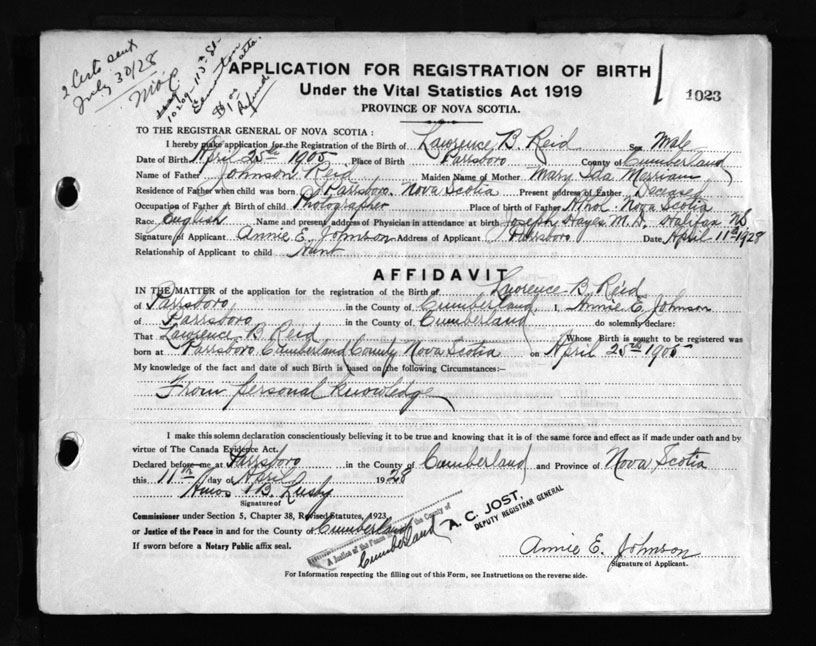 2 Certs sent
July 30/28
10209-113th St.
Edmonton
Alta.
$1 on
Refund
APPLICATION FOR REGISTRATION OF BIRTH
Under the Vital Statistics Act 1919
PROVINCE OF NOVA SCOTIA.
1023
TO THE REGISTRAR GENERAL OF NOVA SCOTIA:
I hereby make application for the Registration of the Birth of Lawrence B. Reid Sex Male
Date of Birth April 25th 1905 Place of Birth Parrsboro County of Cumberland
Name of Father Johnson Reid Maiden Name of Mother Mary Ida Merriam
Residence of Father when child was born Parrsboro. Nova Scotia Present address of Father Deceased
Occupation of Father at Birth of child Photographer Place of birth of Father Athol Nova Scotia
Race English Name and present address of Physician in attendance at birth Joseph Hayes M.D. Halifax NS
Signature of Applicant Annie E. Johnson Address of Applicant Parrsboro Date April 11th 1928
Relationship of Applicant to child Aunt
AFFIDAVIT
IN THE MATTER of the application for the registration of the Birth of Lawrence B. Reid
of Parrsboro in the County of Cumberland, I, Annie E. Johnson
of Parrsboro in the County of Cumberland do solemnly declare:
That Lawrence B Reid Whose Birth is sought to be registered was
born at Parrsboro Cumberland County Nova Scotia on April 25th 1905
My knowledge of the fact and date of such Birth is based on the following Circumstances:—
From personal knowledge
I make this solemn declaration conscientiously believing it to be true and knowing that it is of the same force and effect as if made under oath and by
virtue of The Canada Evidence Act.
Declared before me at Parrsboro in the County of Cumberland and Province of Nova Scotia
this 11th day of April 1928
Amos B. Lusby
Signature of
Commissioner under Section 5, Chapter 38, Revised Statutes, 1923,
or Justice of the Peace in and for the County of Cumberland
If sworn before a Notary Public affix seal.
A Justice of the Peace in and for the County of
Cumberland
A. C. JOST,
DEPUTY REGISTRAR GENERAL
Annie E. Johnson
Signature of Applicant.
For Information respecting the filling out of this Form, see Instructions on the reverse side.